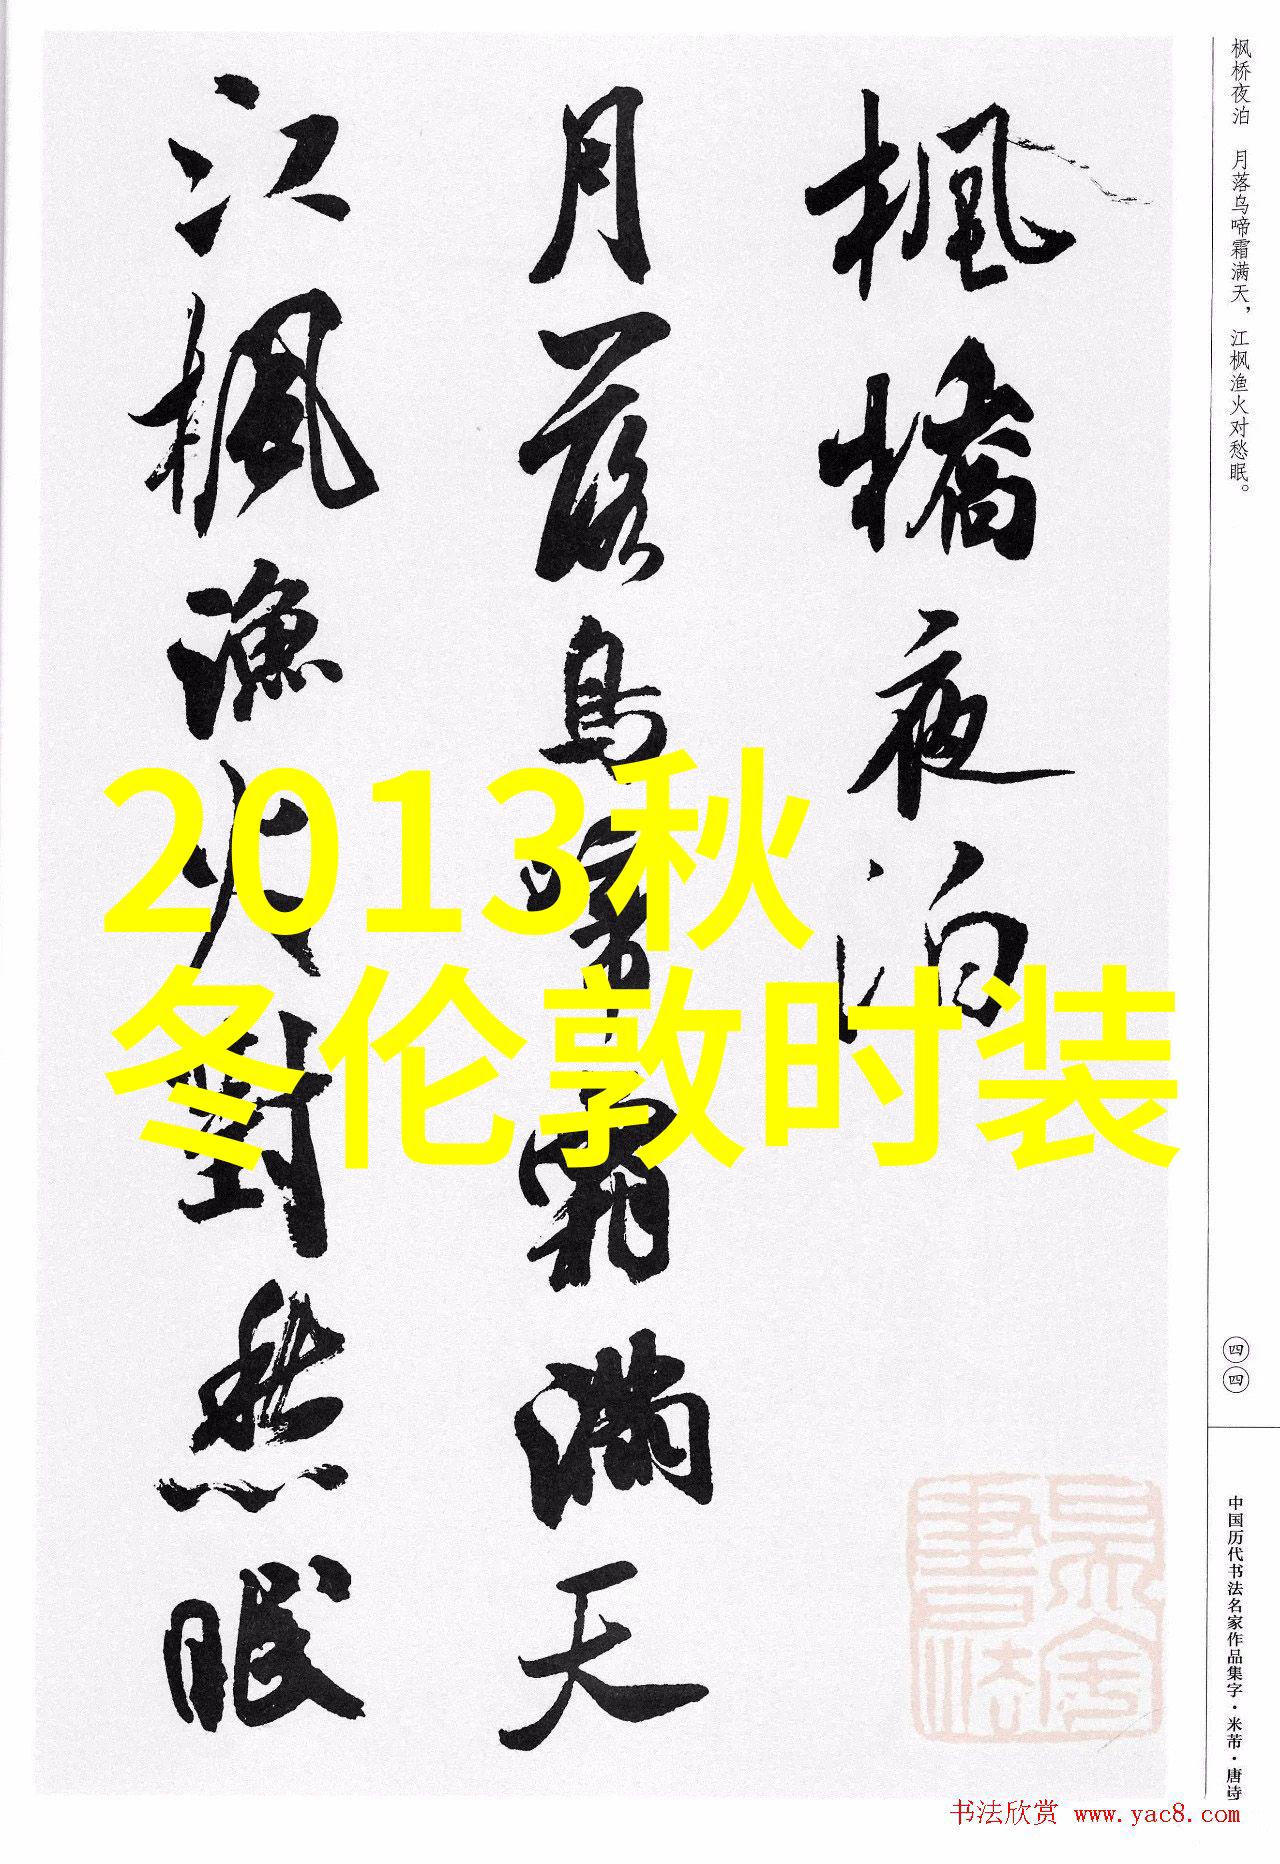 枫桥夜泊 月落乌啼霜满天，江枫渔火对愁眠。
楓橋夜泊
月落烏啼霜滿天
江楓漁火對愁眠
2013秋
冬伦敦时装
四四
中国历代书法名家作品集字·米芾·唐诗
书法欣赏 www.yac8.com